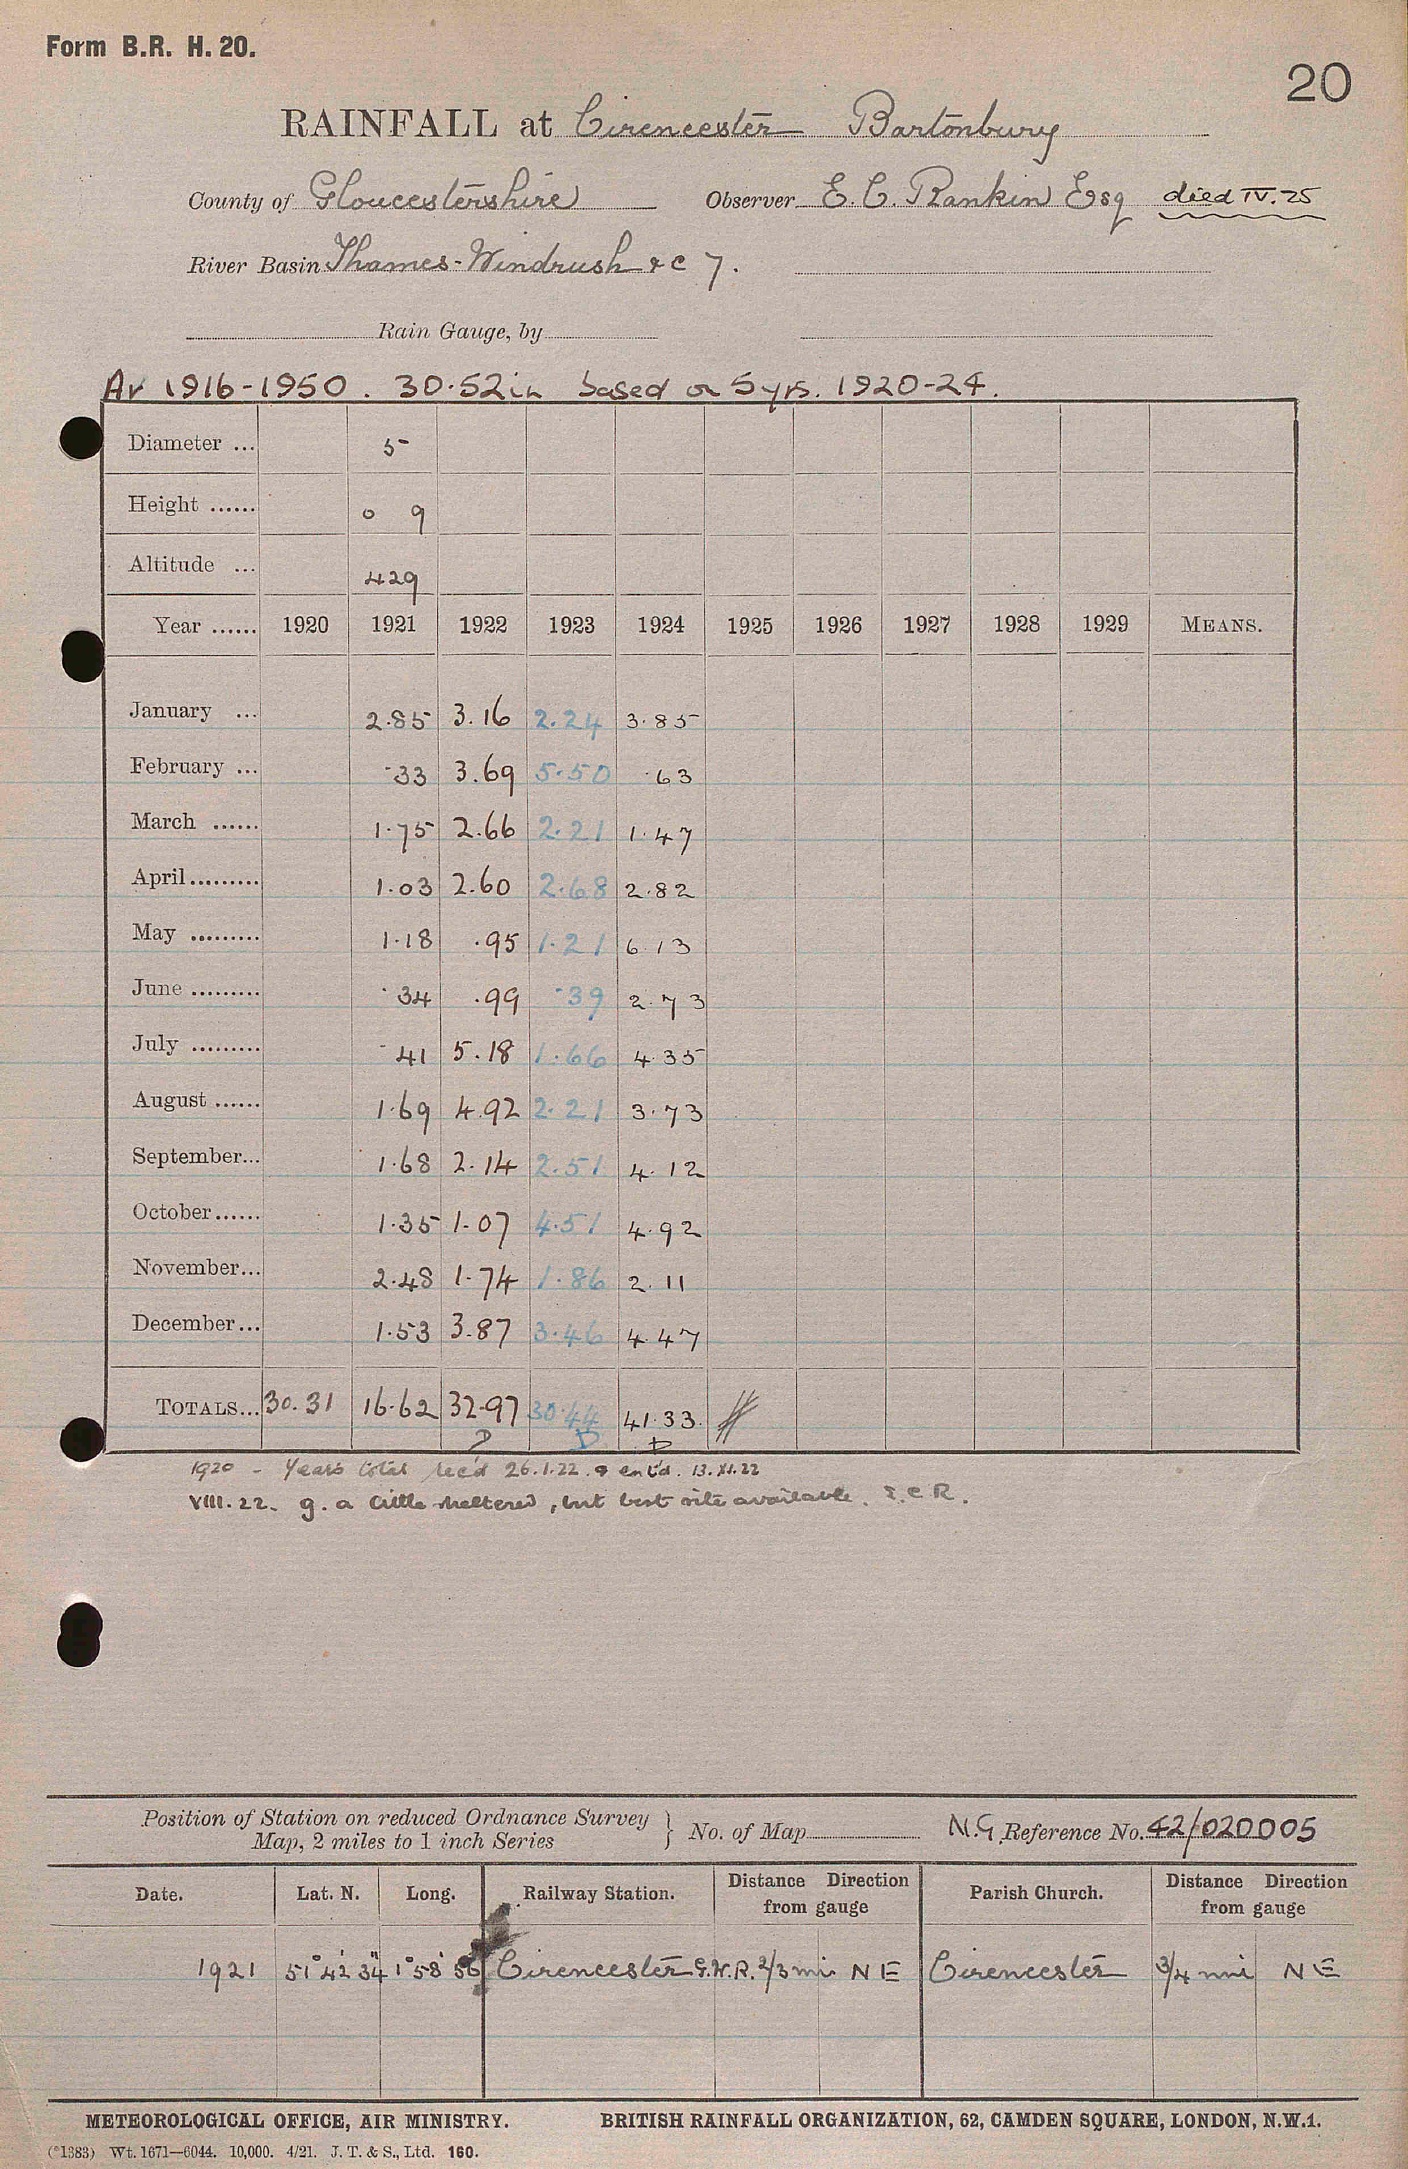 Form B.R. H. 20.
20
RAINFALL at Cirencester Bartonbury
County of Gloucestershire Observer E. C. Rankin Esq died IV. 25
River Basin Thames-Windrush &c 7.
Rain Gauge, by
Av 1916-1950. 30.52 in based on 5 yrs. 1920-24.
Diameter ... 5
Height ...... 0 9
Altitude ... 429
Year ...... 1920 1921 1922 1923 1924 1925 1926 1927 1928 1929 MEANS.
January ... 2.85 3.16 2.24 3.85
February ... .33 3.69 5.50 .63
March ...... 1.75 2.66 2.21 1.47
April......... 1.03 2.60 2.68 2.82
May ......... 1.18 .95 1.21 6.13
June ......... .34 .99 .39 2.73
July ......... .41 5.18 1.66 4.35
August ...... 1.69 4.92 2.21 3.73
September... 1.68 2.14 2.51 4.12
October...... 1.35 1.07 4.51 4.92
November... 2.48 1.74 1.86 2.11
December... 1.53 3.87 3.46 4.47
TOTALS... 30.31 16.62 32.97 30.44 41.33
D D D
1920 - Years total rec'd 26.1.22. & ent'd. 13.XI.22
VIII.22. g. a little sheltered, but best site available. E.C.R.
Position of Station on reduced Ordnance Survey
Map, 2 miles to 1 inch Series } No. of Map N.G. Reference No. 42/020005
Date. Lat. N. Long. Railway Station. Distance Direction from gauge Parish Church. Distance Direction from gauge
1921 51° 42' 34" 1° 58' 56" Cirencester G.W.R. 2/3 mi NE Cirencester 3/4 mi NE
METEOROLOGICAL OFFICE, AIR MINISTRY. BRITISH RAINFALL ORGANIZATION, 62, CAMDEN SQUARE, LONDON, N.W.1.
(*1383) Wt. 1671—6044. 10,000. 4/21. J. T. & S., Ltd. 160.